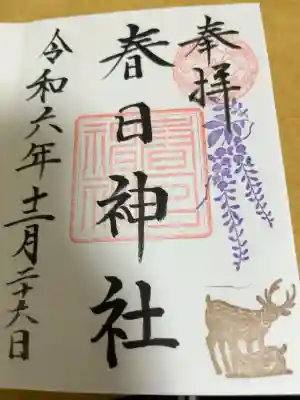 奉拝
春日神社
令和六年十二月二十六日